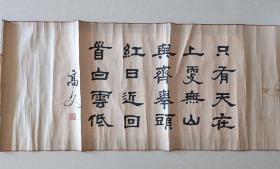 只有天在
上更無山
與齊舉頭
紅日近回
首白雲低
高文